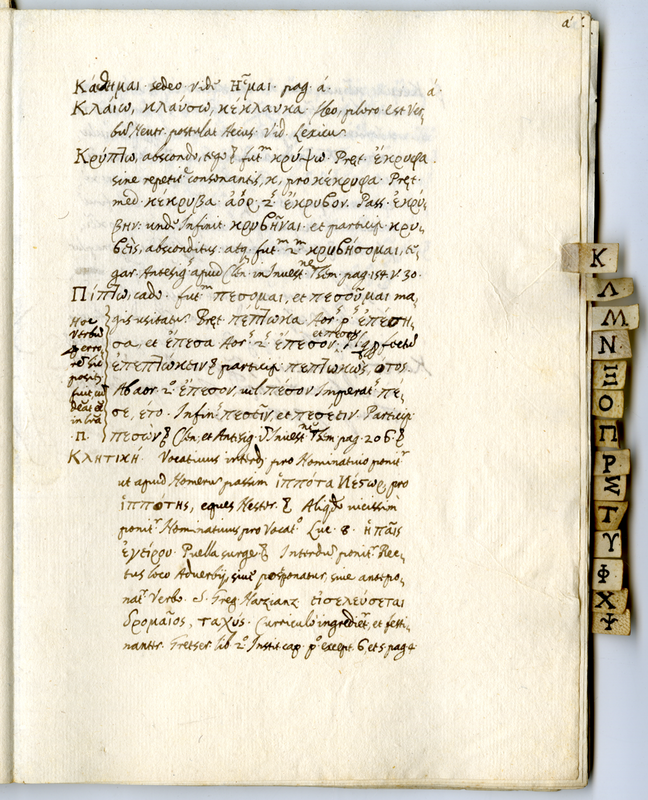 á
Κάθημαι sedeo vide Ἧμαι pag. á. á.
Κλαίω, κλαύσω, κέκλαυκα fleo, ploro est Ver-
bū Neutr.
Κρύπτω, abscondo, tego futm κρύψω. Pręt. ἔκρυφα.
sine repetite consonantis, κ, pro κέκρυφα. Pręt.
med. κέκρυβα ἀόρ. 2º ἔκρυβον. Pass. ἐκρύ-
βην. unde Infinit. κρυβῆναι. et particip. κρυ-
βεὶς, absconditus. atq futm 2m κρυβήσομαι,
gar. Antesig. apud in Invest. pag. 157. V. 30.
Πίπτω, cado. futm πεσομαι, et πεσοῦμαι ma-
gis usitate. Pręt πεπτωκα Aor. pº ἔπεση-
σα, et ἔπεσα Aor. 2º ἔπεσον.
ἐπεπτώκειν particip. πεπτωκώς, οτος.
Ab aor. 2º ἔπεσον, vel πέσον Imperat. πέ-
σε, ετο. Infin. πεσεῖν, et πεσέειν. Particip.
πεσὼν et Antesig. Invest. pag. 206.
Hoc
Verbū
per erro
rē hic
positū
fuit, cū
in lrā
Π.
Κλητικὴ. Vocativus interdū pro Nominativo ponitr
ut apud Homerū passim ἱππότα Νέστωρ, pro
ἱππότης, eques Nestor. Aliqdo vicissim
ponitr Nominativus pro Vocatº. Luc. 8. ἡ παῖς
ἐγείρου. Puella surge. Interdū ponitr Rec-
tus loco Adverbij, sive postponatur, sive antepo-
natr Verbo. S. Greg. Nazianz. εἰσελεύσεται
δρομαῖος, ταχύς. Curriculo ingredietr, et festi-
nanter. Gretser. lib. 2º Instit. cap. pº except. 6, et 5. pag. 4
Κ
Λ
Μ
Ν
Ξ
Ο
Π
Ρ
Σ
Τ
Υ
Φ
Χ
Ψ